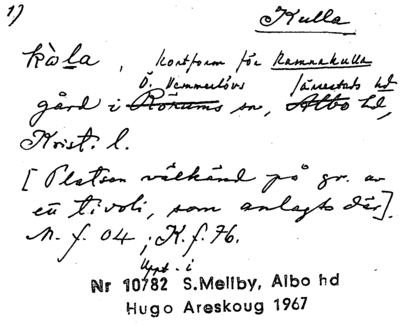 1)
Kulla
kùla, kortform för Ramnakulla
Ö. Vemmerlövs Järrestads hd
gård i Rörums sn, Albo hd,
Krist. l.
[Platsen välkänd på gr. av
en tivoli, som anlagts där].
M. f. 04; K. f. 76.
Uppt. i
Nr 10782 S. Mellby, Albo hd
Hugo Areskoug 1967